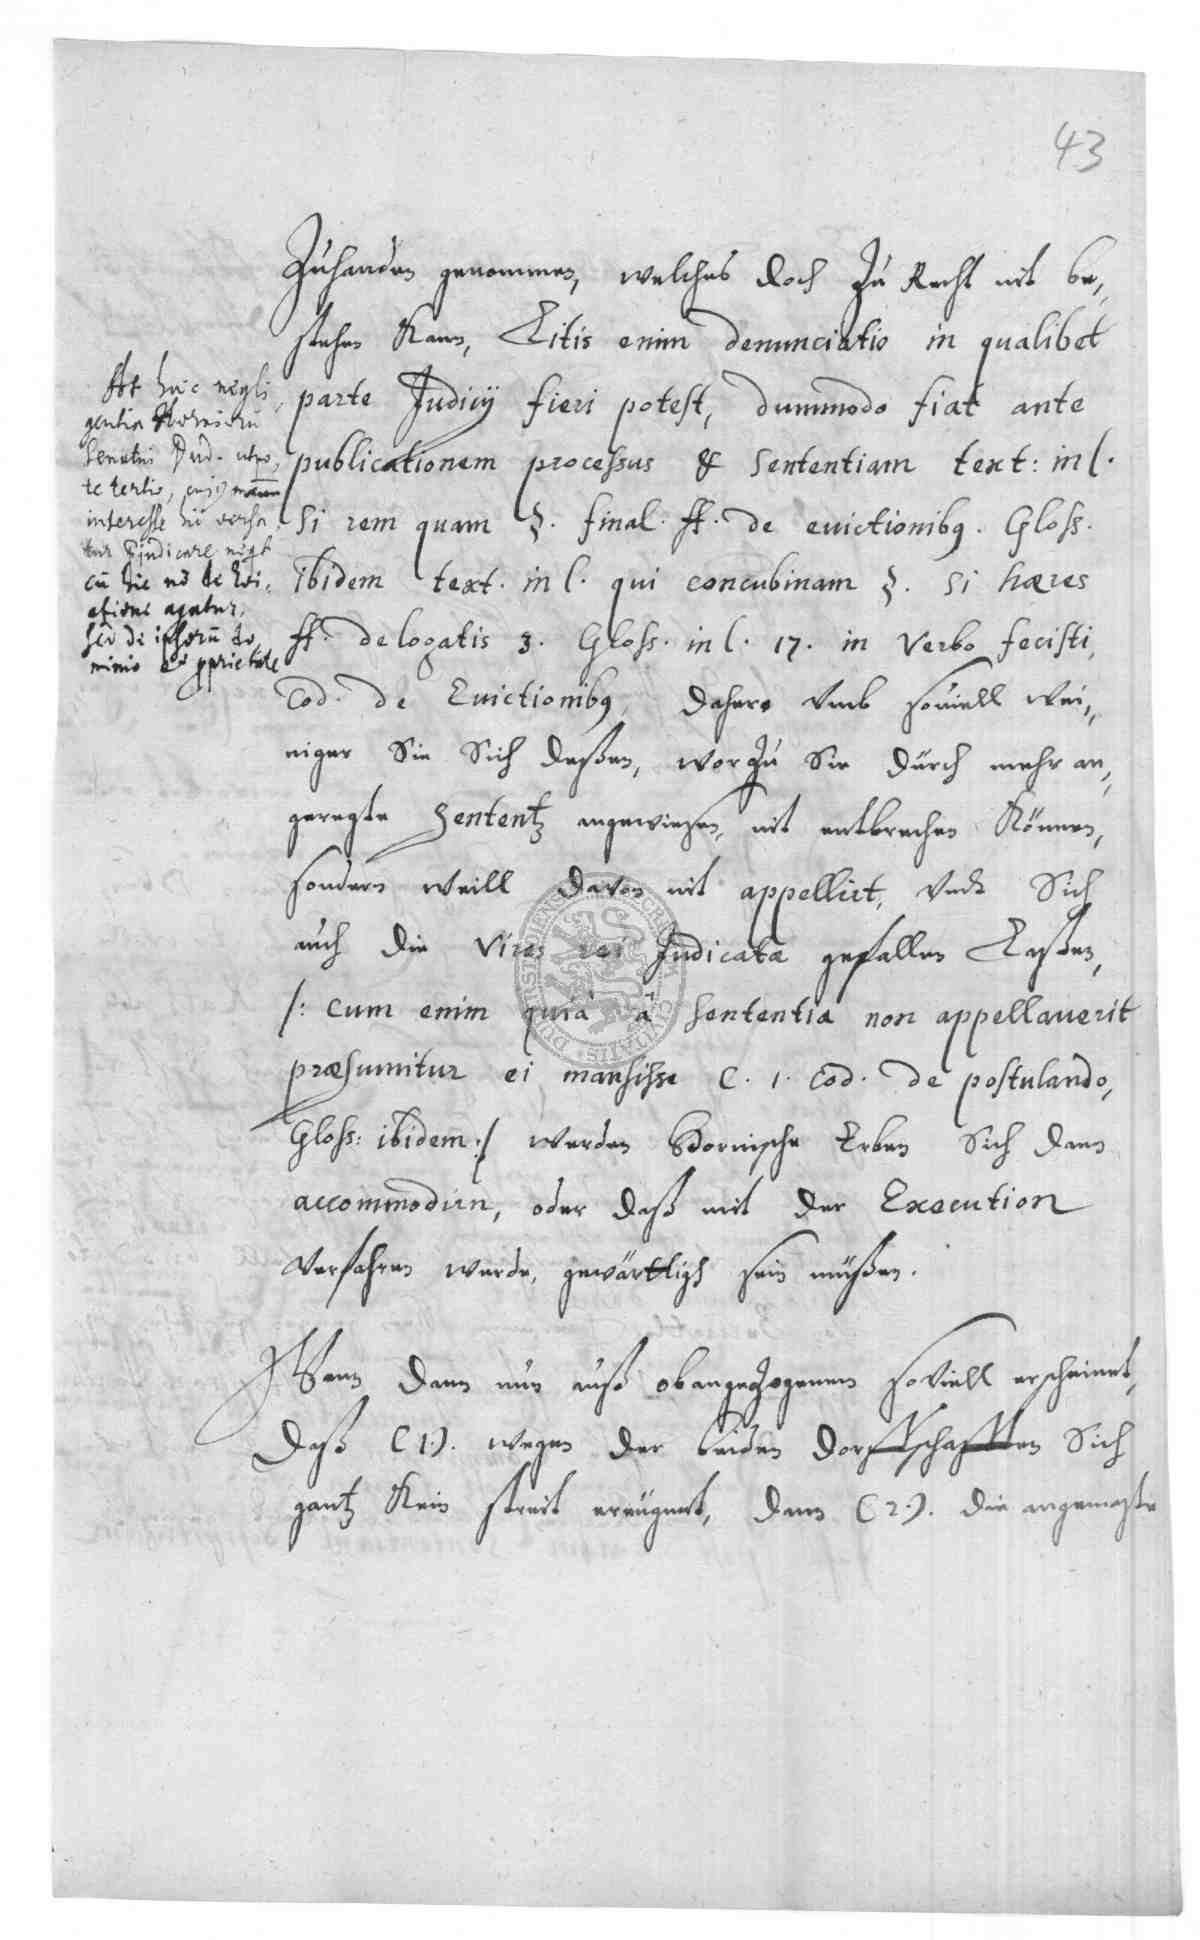 43
Zuhanden genommen, welches doch Zu Recht nit be,,
stehen Kann, Litis enim denunciatio in qualibet
parte Judicij fieri potest, dummodo fiat ante
publicationem processus & Sententiam text: in l.
Si rem quam §. final. ff. de evictionibq. Gloss.
ibidem text. in l. qui concubinam §. Si hæres
ff. de legatis 3. Gloss. in l. 17. in Verbo fecisti,
Cod. de Euictionibq, dahero Vmb souiell wei,,
niger Sie Sich deßen, worZu Sie durch mehr an,,
geregte Sententz angewiesen, nit entbrechen Können,
sondern weill davon nit appellirt, Vndt Sich
auch die Vires rei Judicatæ gefallen Laßen,
/: Cum enim quia à Sententia non appellauerit
præsumitur ei mansisse C. 1. Cod. de postulando,
Gloss: ibidem :/ werden Bornische Erben Sich dann
accommodirn, oder daß mit der Execution
Verfahren werde, gewärttigh sein müßen.
Wann dann nun auß obangeZogenem soViell erscheinet,
daß (1.). wegen der beiden dorffschafften Sich
gantz Kein streit ereügnet, dann (2.). die angemaste
At huic negli,
gentia
Senatus Jud.
te tertio, cujq
interesse
tur Pjudicare neqt
cũ hic nõ de Evi,
ctione agatur,
sed de ipsorũ do,
minio et pprietate